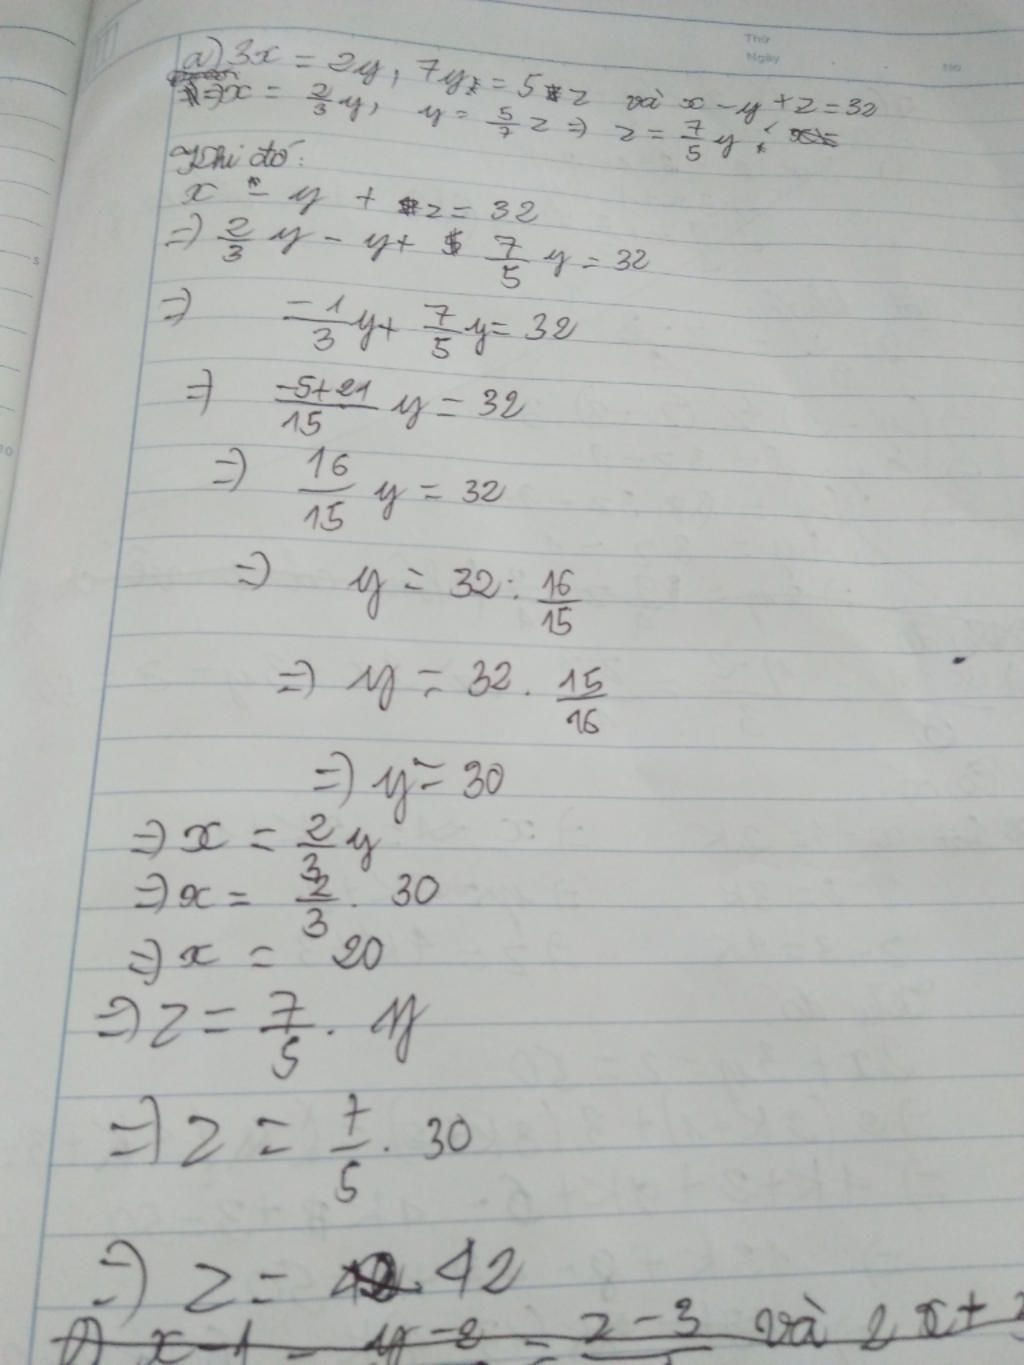 Thứ
Ngày No
a) 3x = 2y, 7y = 5z và x - y + z = 32
=> x = 2/3 y, y = 5/7 z => z = 7/5 y
Khi đó:
x - y + z = 32
=> 2/3 y - y + 7/5 y = 32
=> -1/3 y + 7/5 y = 32
=> -5+21/15 y = 32
=> 16/15 y = 32
=> y = 32 : 16/15
=> y = 32 . 15/16
=> y = 30
=> x = 2/3 y
=> x = 2/3 . 30
=> x = 20
=> z = 7/5 . y
=> z = 7/5 . 30
=> z = 42
x-1 = y-2 = z-3 và 2x +